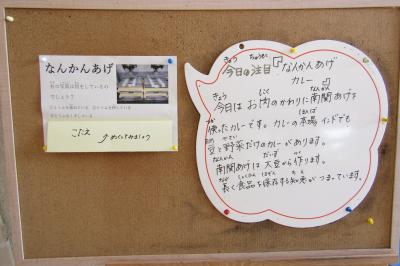 なんかんあげ
右の写真は何をしているの
でしょう?
こたえ
めくってみましょう
きょう ちゅうもく
今日の注目『なんかんあげ
カレー』
きょう にく なんかん
今日はお肉のかわりに南関あげを
つか ほんば
使ったカレーです。カレーの本場インドでも
まめ やさい
豆と野菜だけのカレーがあります。
なんかん だいず つく
南関あげは大豆から作ります。
なが しょくひん ほぞん ちえ
長く食品を保存する知恵がつまっています。